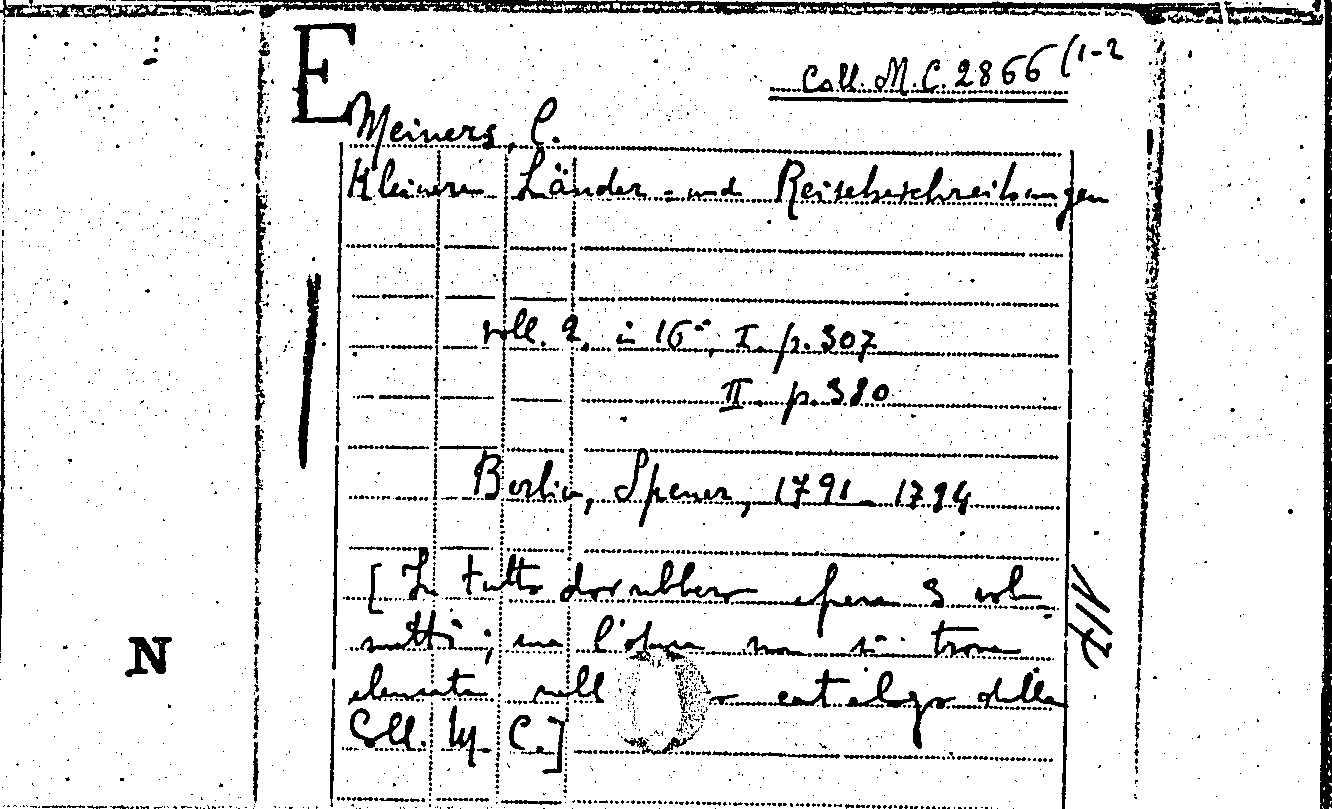 E
Coll. M.C. 2866 (1-2
Meiners, C.
Kleinere Länder- und Reisebeschreibungen
voll. 2, in 16°, I. p. 307
II. p. 380
Berlin, Speuer, 1791-1794
[In tutto dovrebbero essere 3 volu-
metti; ma l'opera non si trova
elencata nell catalogo della
Coll. M. C.]
N